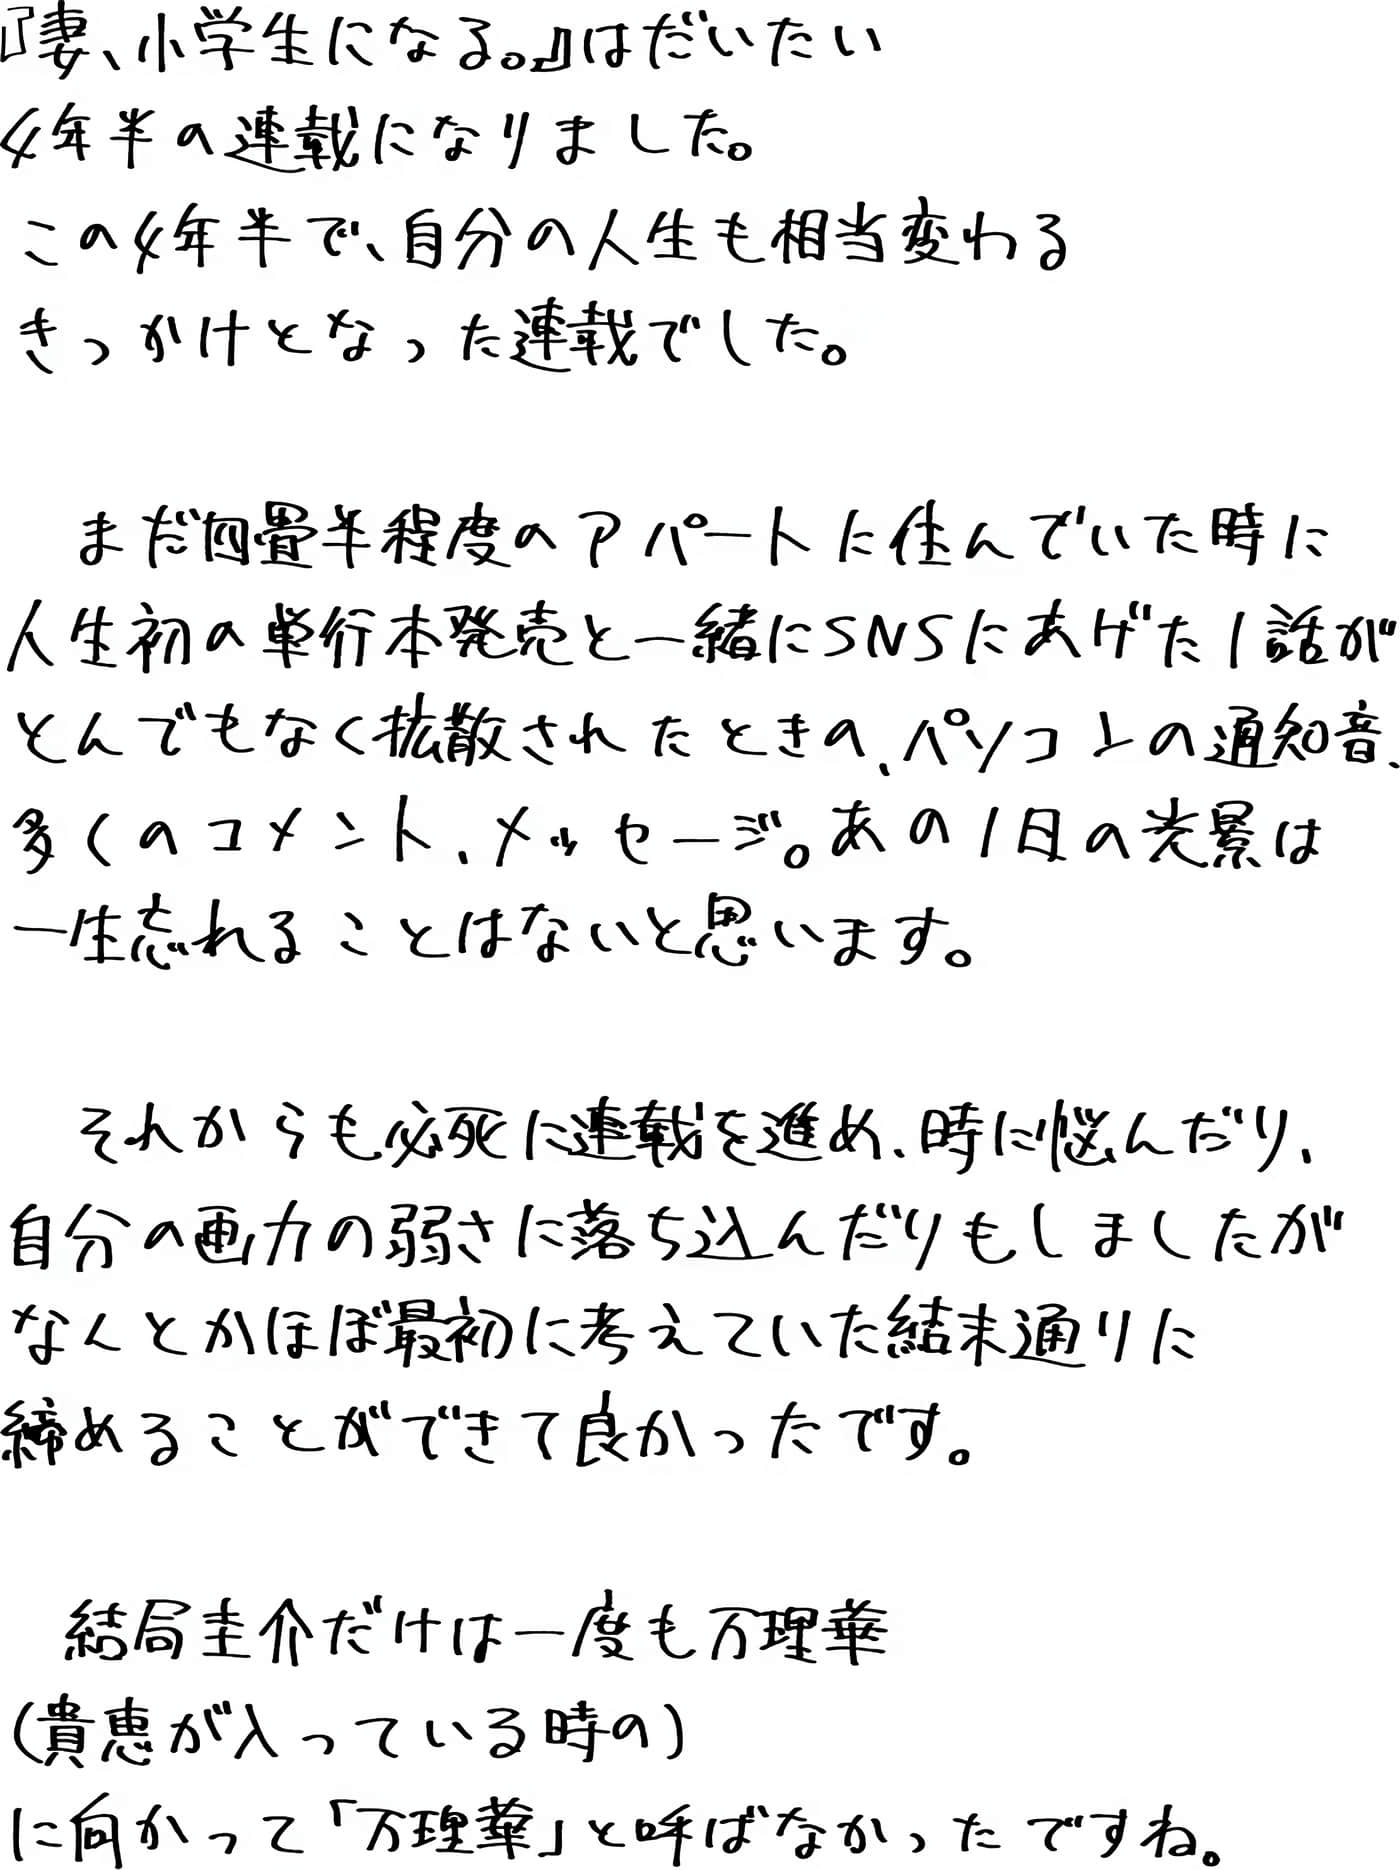 『妻、小学生になる。』はだいたい
4年半の連載になりました。
この4年半で、自分の人生も相当変わる
きっかけとなった連載でした。
まだ四畳半程度のアパートに住んでいた時に
人生初の単行本発売と一緒にSNSにあげた1話が
とんでもなく拡散されたときの、パソコンの通知音、
多くのコメント、メッセージ。あの1日の光景は
一生忘れることはないと思います。
それからも必死に連載を進め、時に悩んだり、
自分の画力の弱さに落ち込んだりもしましたが
なんとかほぼ最初に考えていた結末通りに
締めることができて良かったです。
結局圭介だけは一度も万理華
(貴恵が入っている時の)
に向かって「万理華」と呼ばなかったですね。